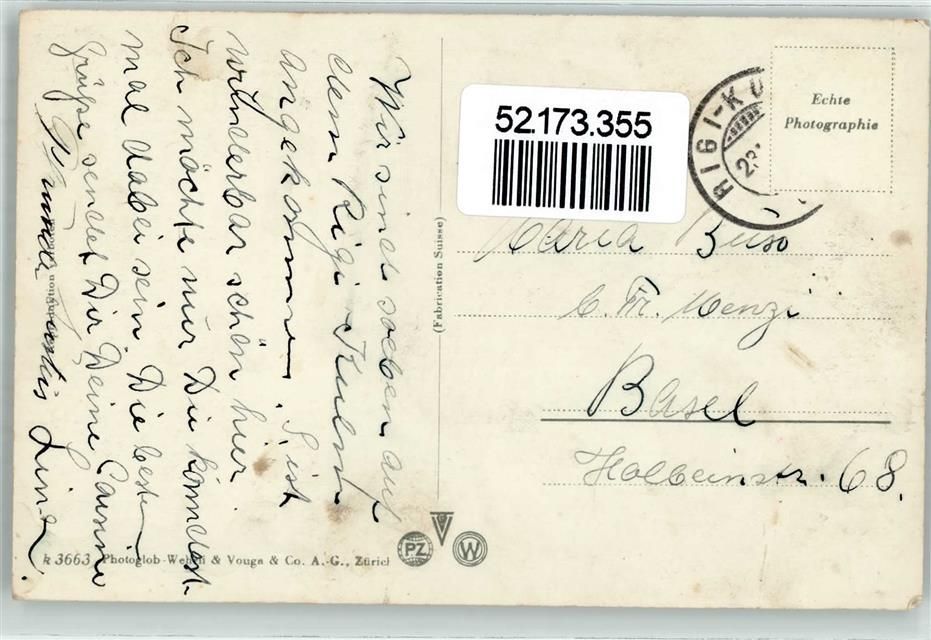 Wir sind soeben auf
dem Rigi-Kulm
angekommen. S'ist
wunderbar schön hier
Ich möchte nur Du könntest
mal dabei sein Die besten
Grüsse sendet Dir Deine
Lina
52.173.355
RIGI-KU
Echte
Photographie
(Fabrication Suisse)
Maria
C. Fr. Menzi
Basel
Holbeinstr. 68.
k 3663 Photoglob-Wehrli & Vouga & Co. A.-G., Zürich
PZ
V
W